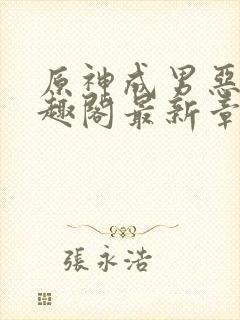 原神戒男惡
趣閣最新章
張永浩